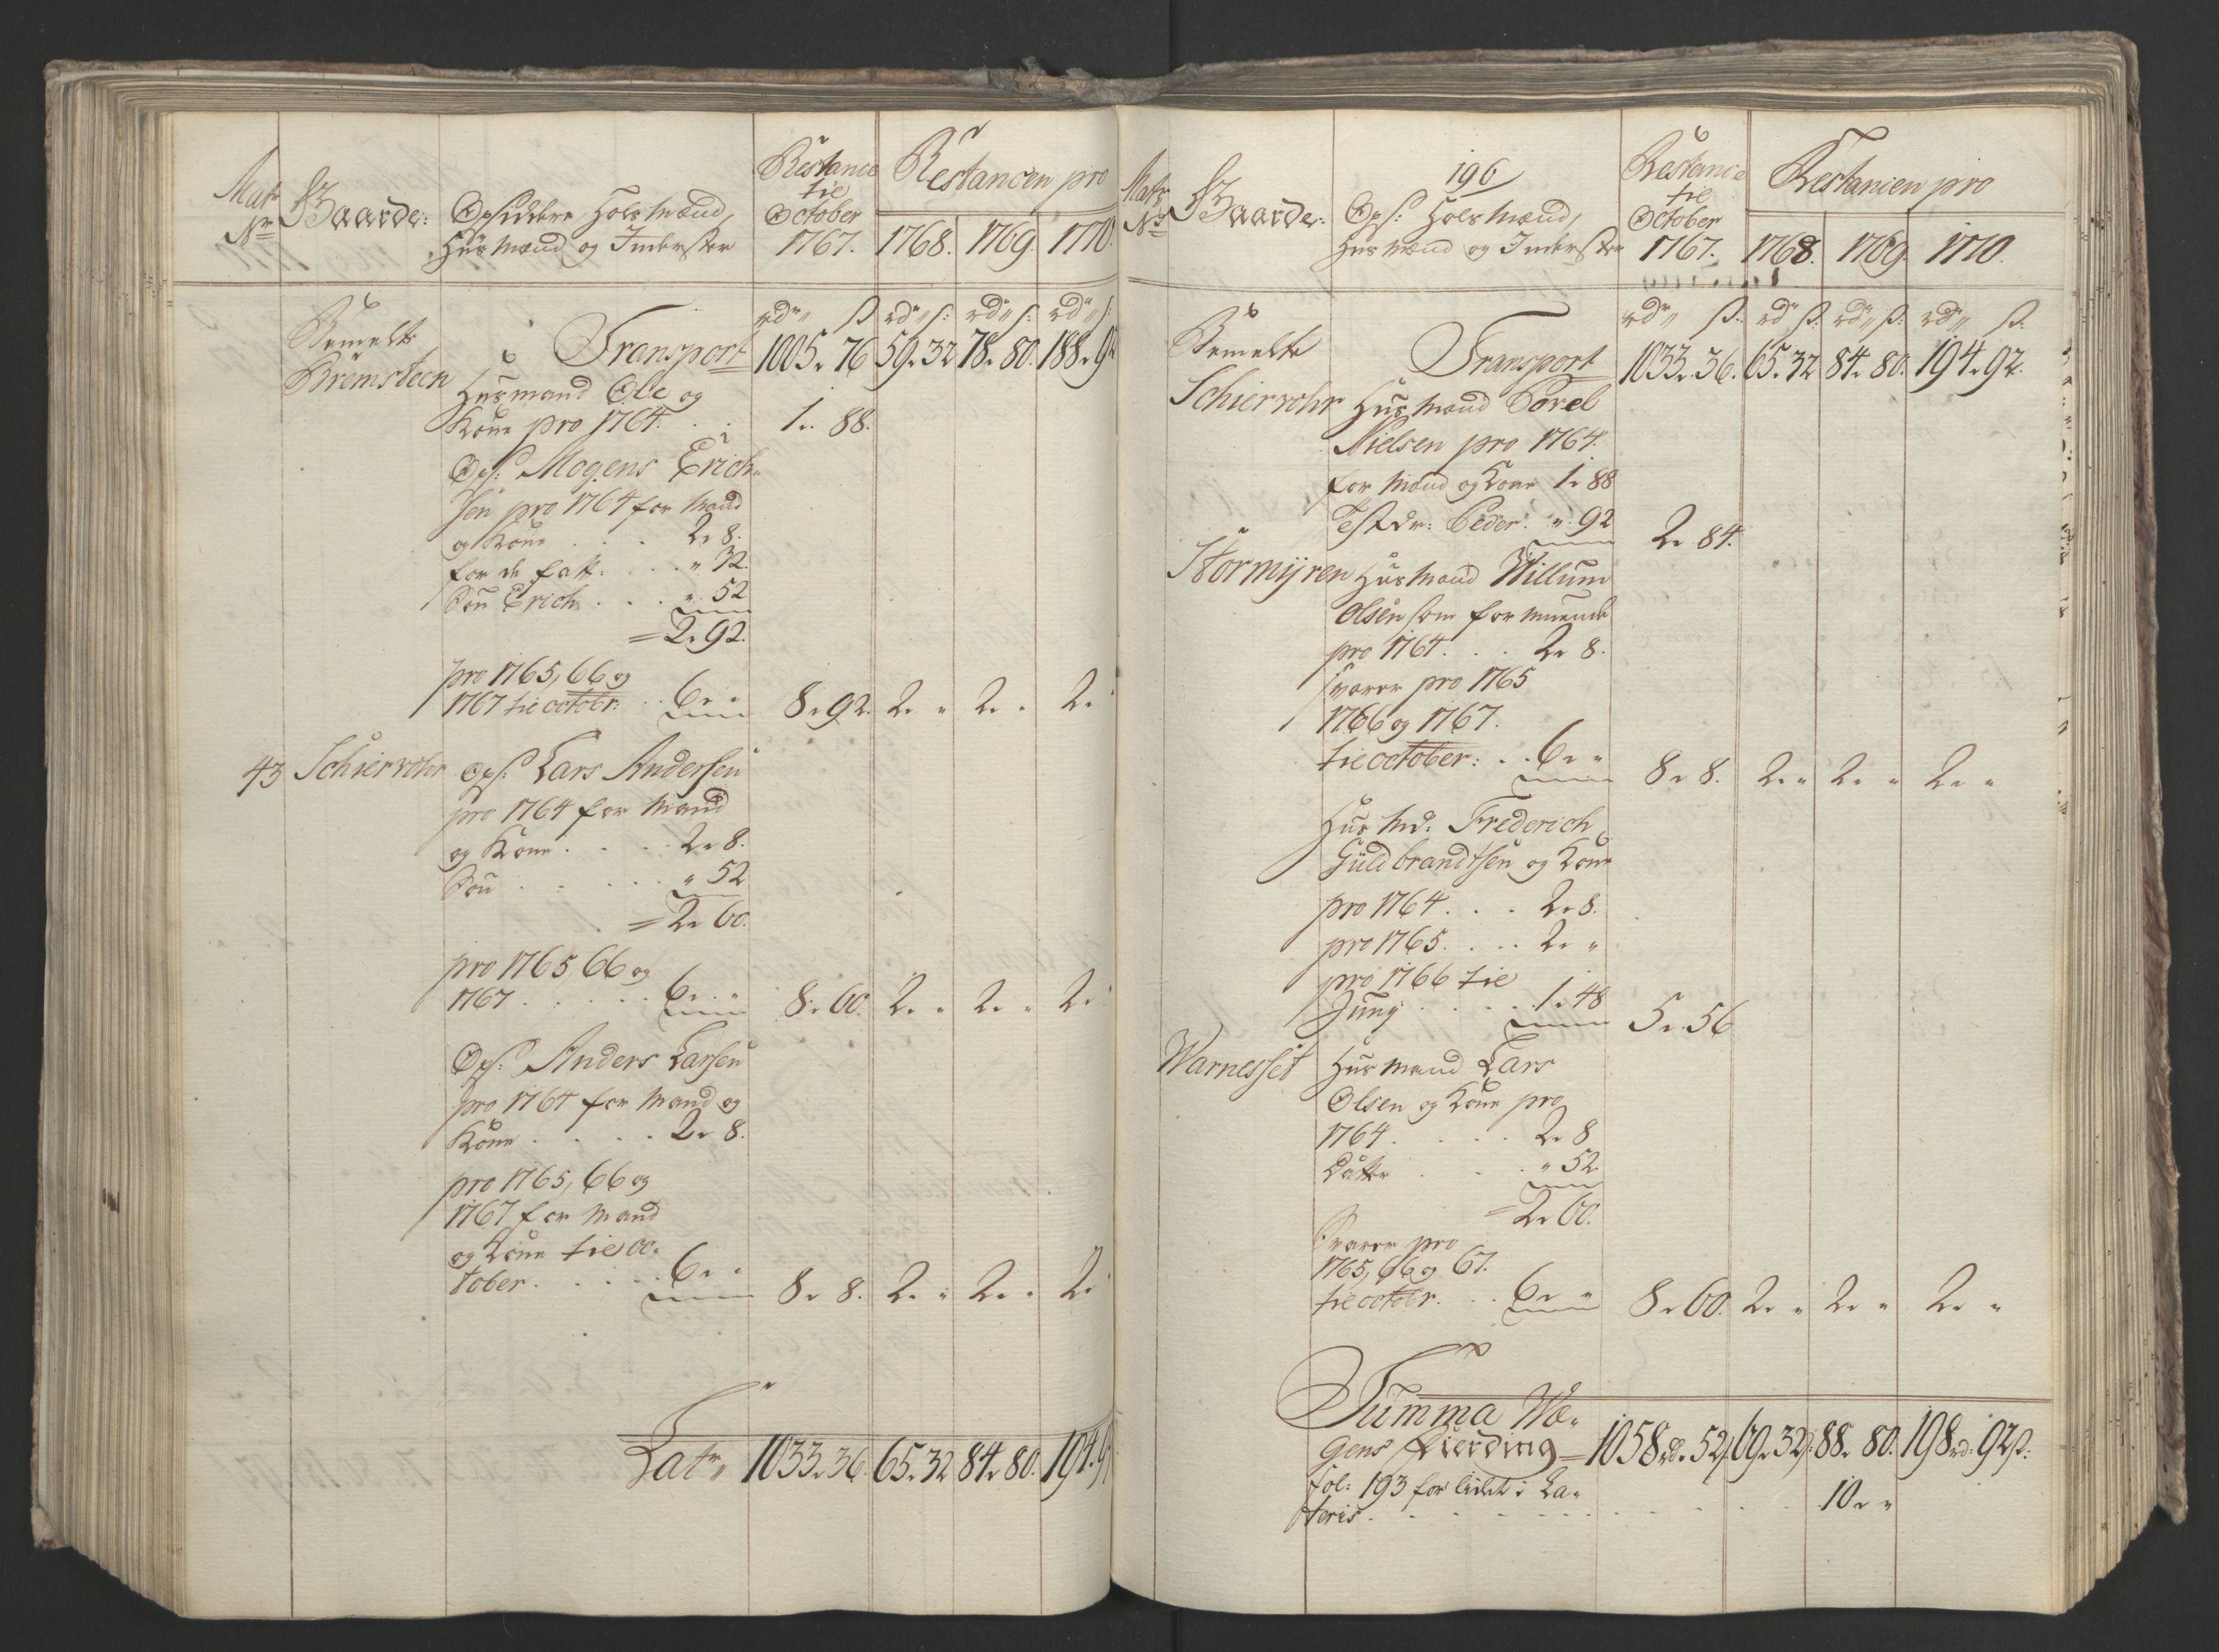 Matr Nr
Gaarde:
Opsiddere, Holsmænd,
Huusmænd og Inderster
Restance
til
October
1767.
Restancen pro
1768. 1769. 1770.
rdr ß rdr ß: rdr ß: rdr ß:
Bemelte
Bremsteen
Transport 1005. 76 59. 32 78. 80. 188. 92
Huusmand Ole og
Kone pro 1764. . . 1. 88.
Ops: Mogens Erich-
sen pro 1764 for Mand
og Kone . . . 2. 8.
for de fatt: . . . " 32.
Søn Erich . . . " 52
= 2. 92.
pro 1765, 66 og
1767 til octobr: . . 6. " 8. 92. 2. " 2. " 2. "
43 Schierrohr Ops: Lars Andersen
pro 1764 for Mand
og Kone . . . . 2. 8.
Søn . . . . . " 52
= 2. 60.
pro 1765, 66 og
1767 . . . . . 6. " 8. 60. 2. " 2. " 2. "
Ops: Anders Larsen
pro 1764 for Mand og
Kone . . . . 2. 8.
pro 1765, 66 og
1767 for Mand
og Kone til oc-
tober . . . . . 6. " 8. 8. 2. " 2. " 2. "
Latr 1033. 36. 65. 32 84. 80. 194. 9
Matr No
Gaarde:
196
Ops: Holsmænd,
Huusmænd og Inderster
Restance
til
October
1767.
Restancen pro
1768. 1769. 1770.
rdr ß. rdr ß. rdr ß: rdr ß:
Bemelte
Schierrohr
Transport 1033. 36. 65. 32 84. 80. 194. 92.
Huusmand Povel
Nielsen pro 1764.
for Mand og Kone 1. 88
Peder: " 92 2. 84.
Stormyren Huusmand Willum
Olsen som formuende
pro 1764. . . 2. 8.
svarer pro 1765
1766 og 1767.
til october: . . 6. " 8. 8. 2. " 2. " 2. "
Huusmd: Friderich
Guldbrandtsen og Kone
pro 1764. . . 2. 8.
pro 1765. . . . 2. "
pro 1766 til
Junÿ . . . . . 1. 48 5. 56
Warnesset Huusmand Lars
Olsen og Kone pro
1764. . . . . 2. 8
Datter . . . " 52
= 2. 60.
Svarer pro
1765, 66 og 67.
til octobr. . . 6. " 8. 60. 2. " 2. " 2. "
Summa We-
gens Fierding = 1058 rd. 52 69. 32 88. 80. 198 rd: 92 ß:
fol: 193 for lidet i La-
teris . . . . . . . . . . 10. "